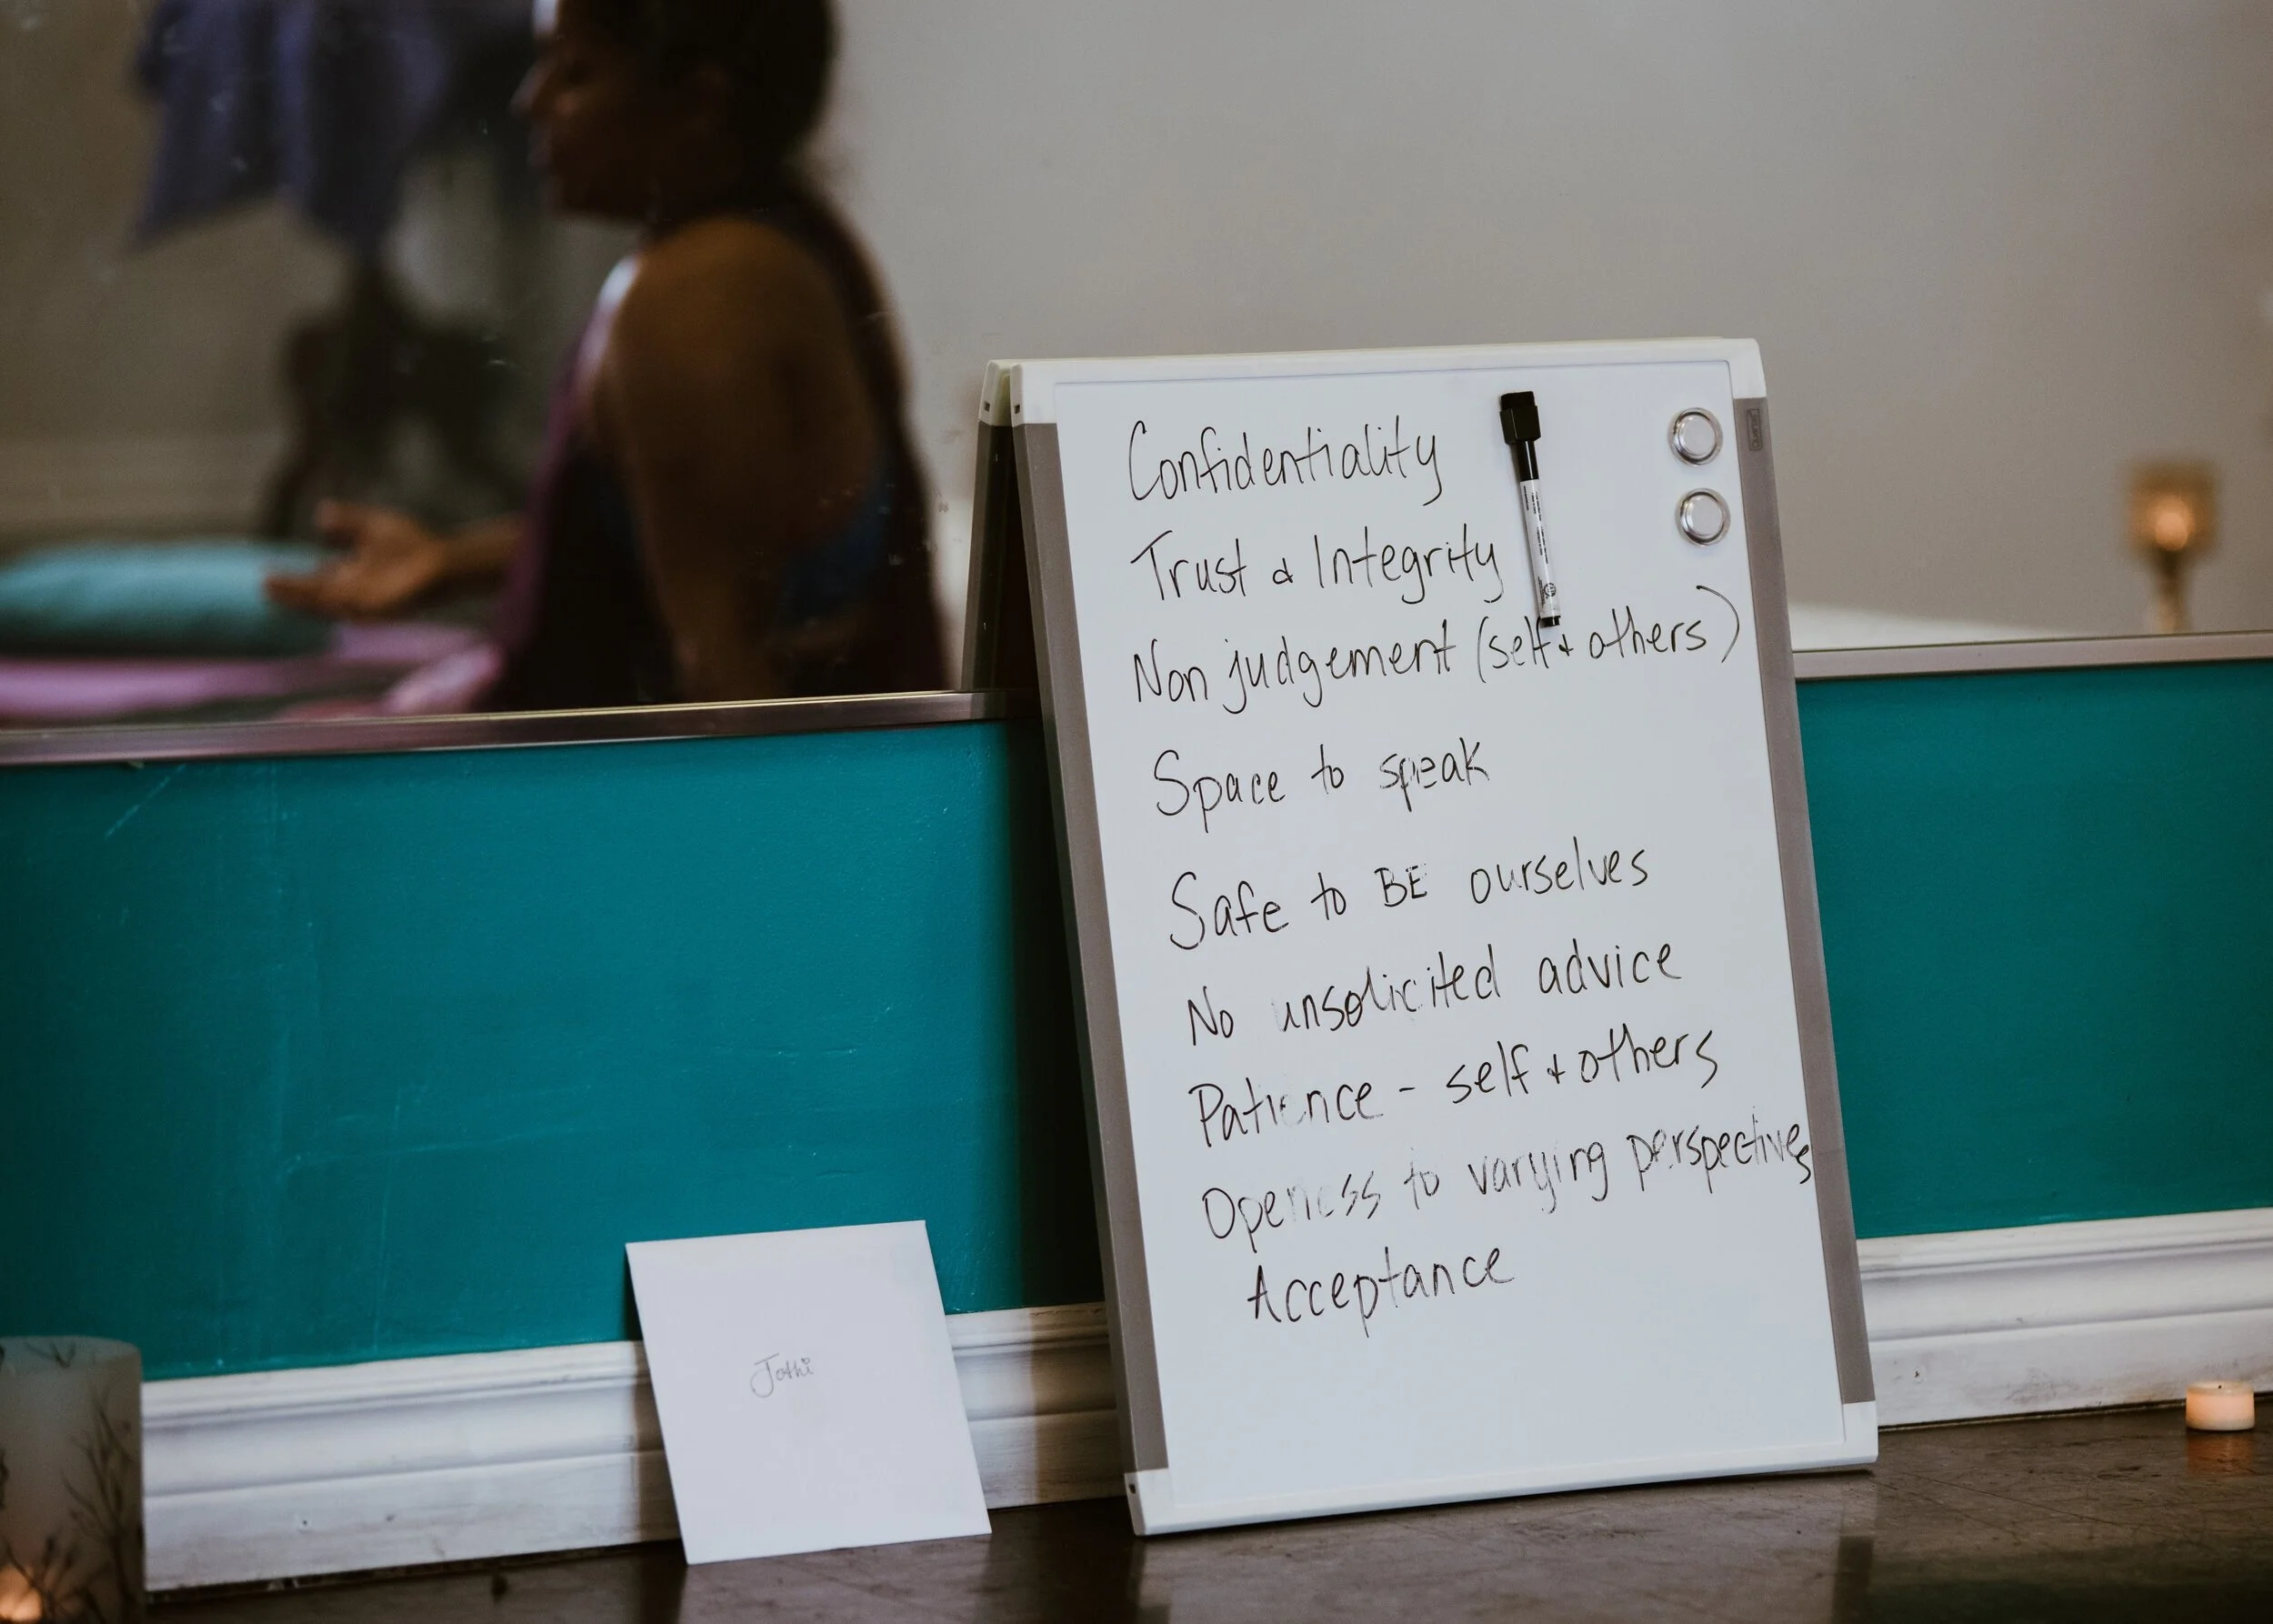 Confidentiality
Trust & Integrity
Non judgement (self + others)
Space to speak
Safe to BE ourselves
No unsolicited advice
Patience - self + others
Openess to varying perspectives
Acceptance
Jothi